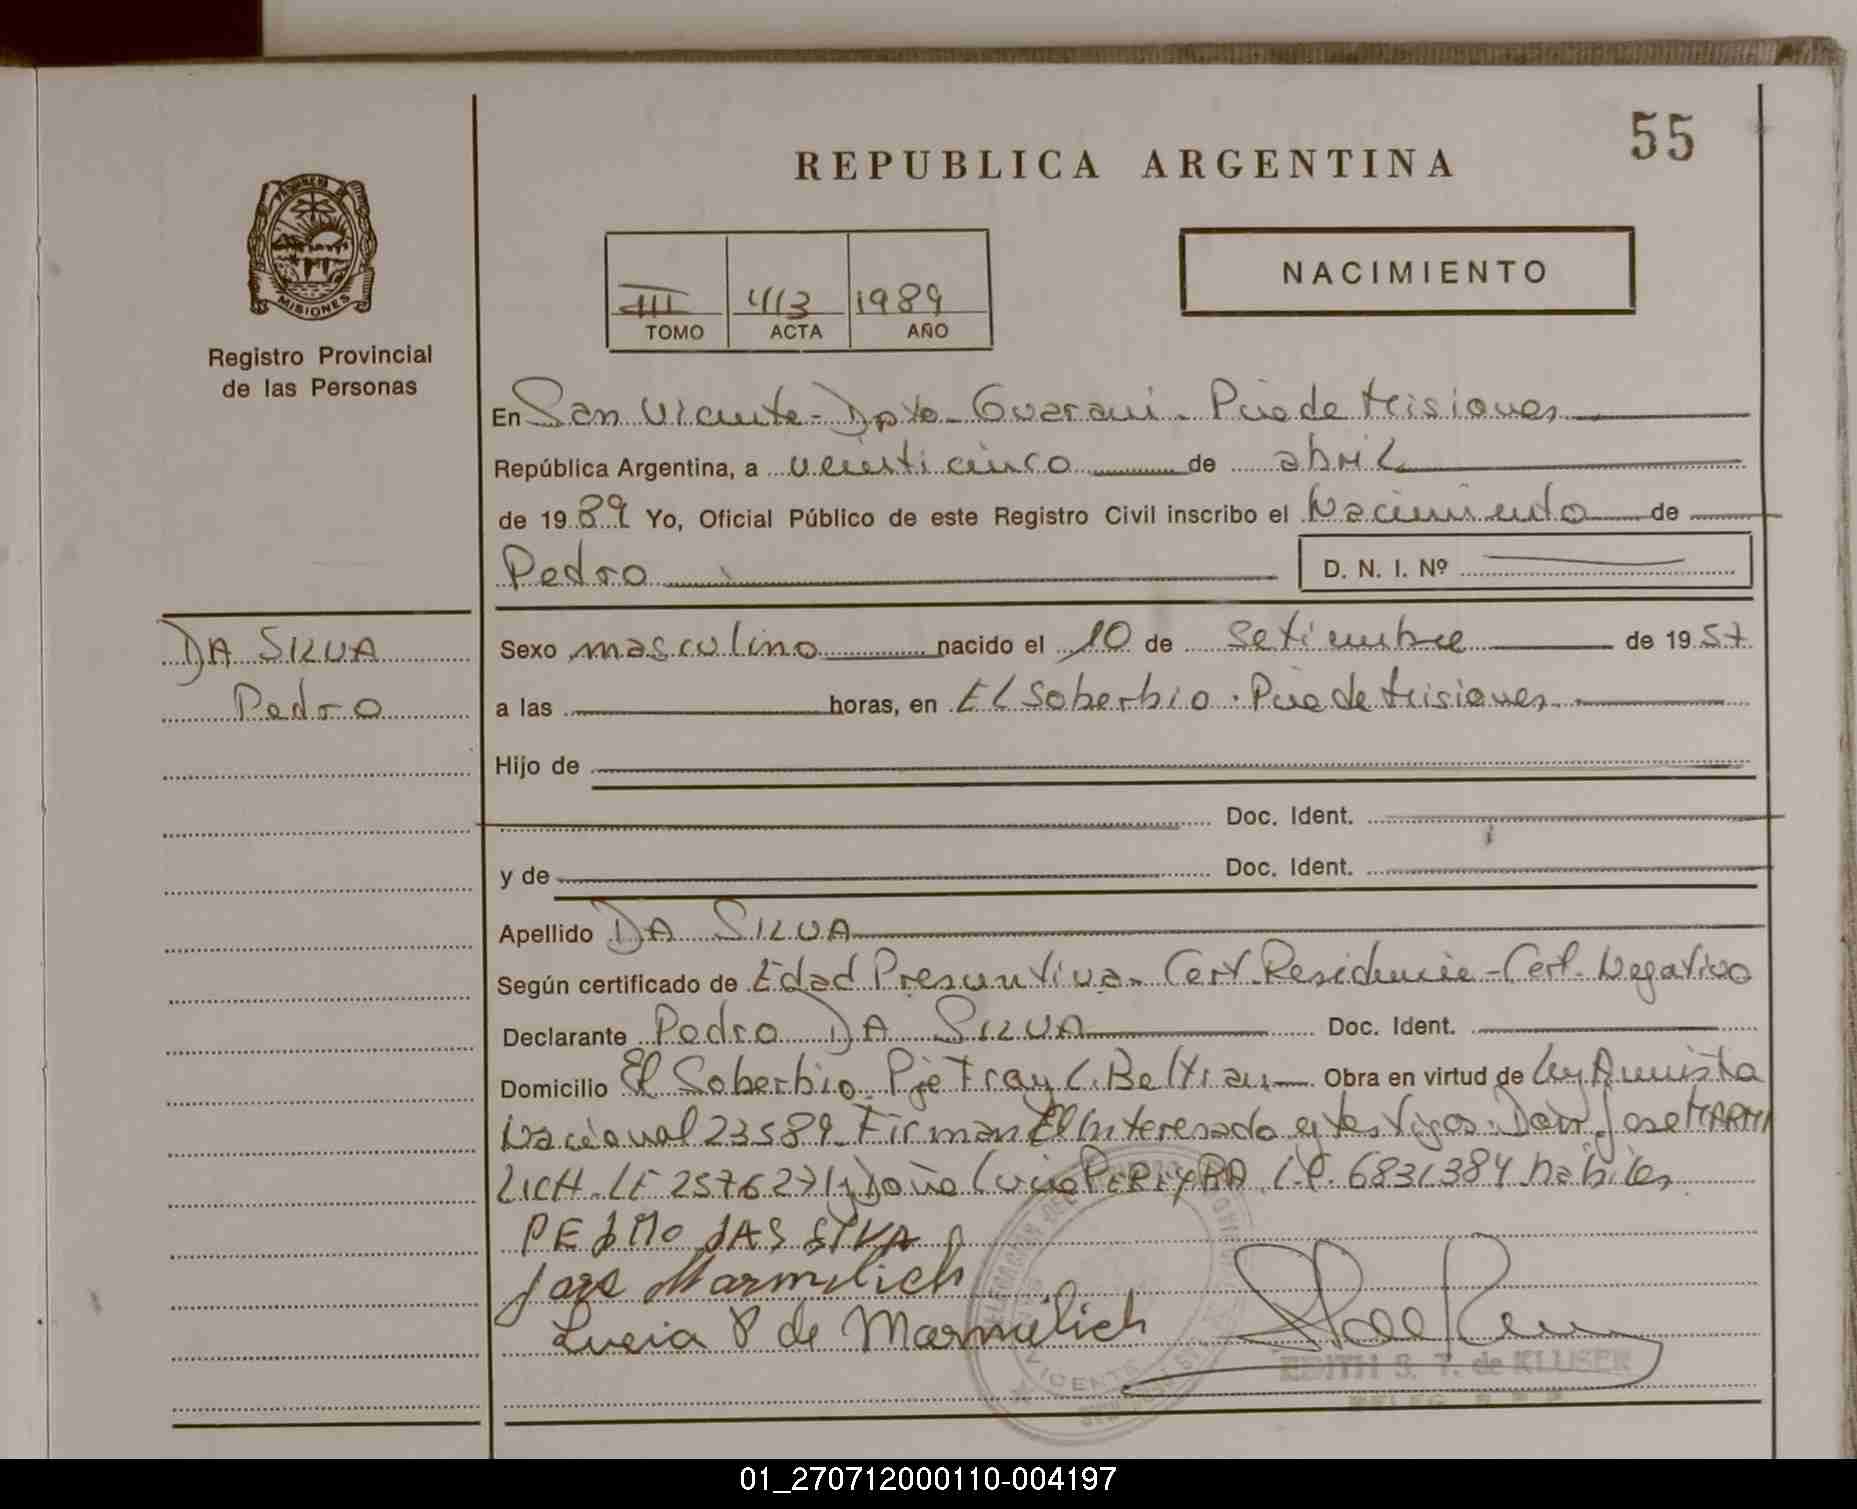 55
REPUBLICA ARGENTINA
NACIMIENTO
III 413 1989
TOMO ACTA AÑO
MISIONES
Registro Provincial
de las Personas
En San Vicente - Dpto - Guarani - Pcia de Misiones
República Argentina, a veinticinco de abril
de 1989 Yo, Oficial Público de este Registro Civil inscribo el Nacimiento de
Pedro D. N. I. Nº
DA SILVA
Pedro
Sexo masculino nacido el 10 de Setiembre de 1957
a las horas, en El Soberbio - Pcia de Misiones
Hijo de
Doc. Ident.
y de Doc. Ident.
Apellido DA SILVA
Según certificado de Edad Presuntiva - Cert. Residencia - Cert. Negativo
Declarante Pedro DA SILVA Doc. Ident.
Domicilio El Soberbio. Pje Fray L. Beltran Obra en virtud de Ley Amnistia
Nacional 23589. Firman El Interesado y testigos. Don Jose MARMI
LICH - LE 2576271 y Doña Lucia PEREYRA L.C. 6831384 habiles
PEDRO DAS SILVA
Jose Marmilich
Lucia P de Marmilich
VICENTE
EDITH S. T. de KLUSER
01_270712000110-004197